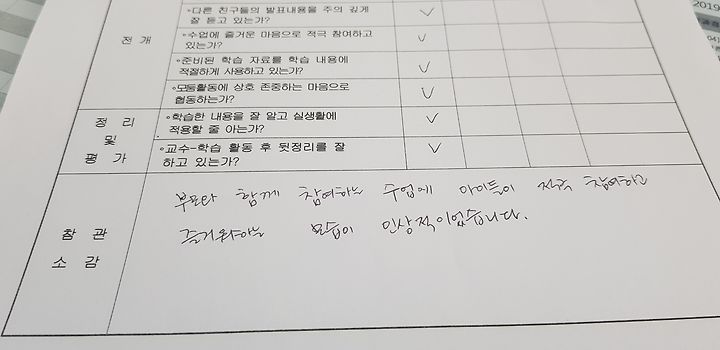 2019
◦다른 친구들의 발표내용을 주의 깊게
잘 듣고 있는가?
전 개
◦수업에 즐거운 마음으로 적극 참여하고
있는가?
◦준비된 학습 자료를 학습 내용에
적절하게 사용하고 있는가?
◦모둠활동에 상호 존중하는 마음으로
협동하는가?
정 리
및
평 가
◦학습한 내용을 잘 알고 실생활에
적용할 줄 아는가?
◦교수-학습 활동 후 뒷정리를 잘
하고 있는가?
참 관
소 감
부모와 함께 참여하는 수업에 아이들이 적극 참여하고
즐거워하는 모습이 인상적이었습니다.